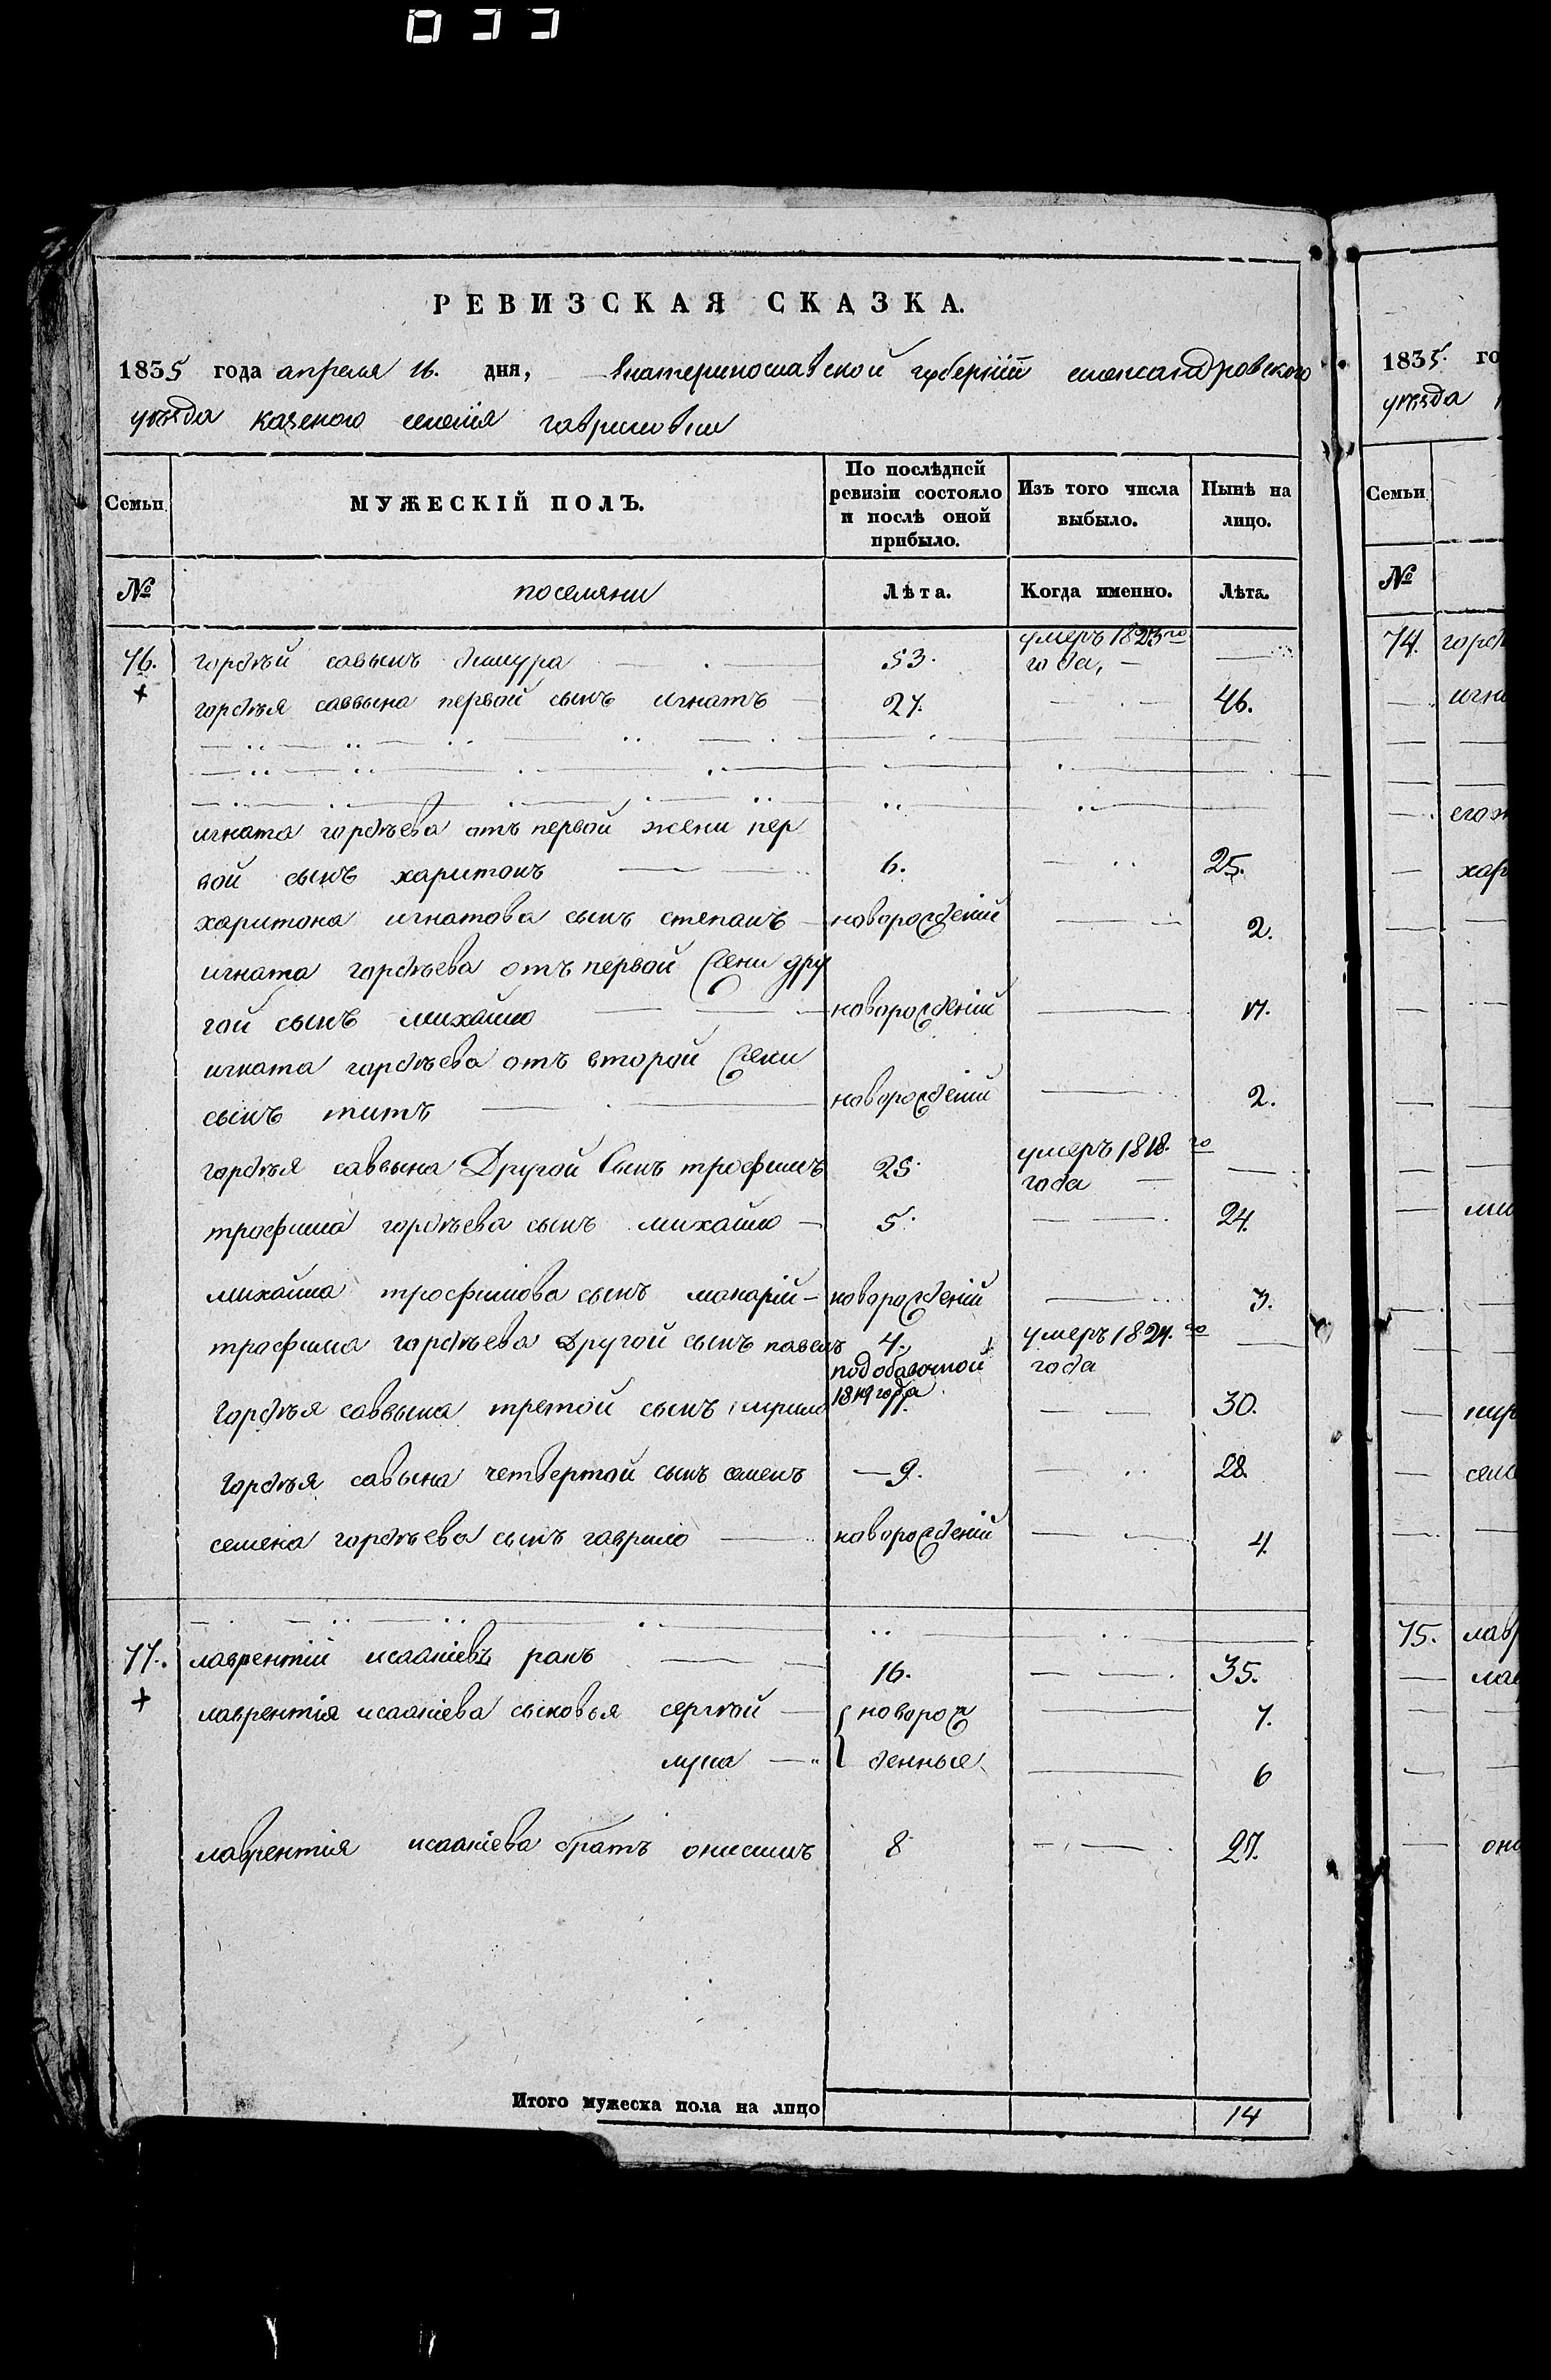 033
РЕВИЗСКАЯ СКАЗКА.
1835 года апреля 16. дня, Екатеринославской губернïй александровского
уѣзда казеного селенïя гавриловки
Семьи
МУЖЕСКІЙ ПОЛЪ.
По послѣдней ревизіи состояло и послѣ оной прибыло.
Изъ того числа выбыло.
Нынѣ на лицо.
№ поселяни Лѣта. Когда именно. Лѣта.
76. гордѣй савынъ 53. умеръ 1823го года,
гордѣя саввына первой сынъ игнатъ 27. 46.
игната гордѣева отъ первой жени пер
вой сынъ харитонъ 6. 25.
харитона игнатова сынъ степанъ новорожденïй 2.
игната гордѣева отъ первой жени дру
гой сынъ михайло новорожденïй 17.
игната гордѣева отъ второй жени
сынъ титъ новорожденïй 2.
гордѣя саввына Другой Сынъ трофимъ 25. умеръ 1818.го года
трофима гордѣева сынъ михайло 5. 24.
михайла трофимова сынъ макарïй новорожденïй 3.
трофима гордѣева Другой сынъ павелъ 4. умеръ 1824.го года
подобавочной 1819 года
Гордѣя саввына третой сынъ 11. 30.
Гордѣя савына четвертой сынъ семенъ 9. 28.
семена гордѣева сынъ гаврило новорожденïй 4.
77. лаврентïй исаакïевъ ракъ 16. 35.
лаврентïя исаакïева сыновья сергѣй новорож 7.
лука денные 6
лаврентïя исаакïева братъ онисимъ 8 27.
Итого мужеска пола на лицо 14
1835. го
уѣзда
Семьи
№
74. горд
игн
его ж
хар
ми
кир
сем
75. лав
лав
они